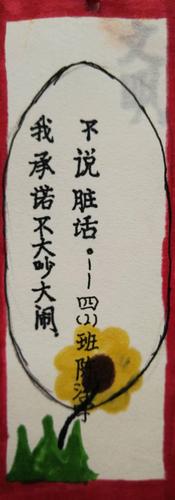 文明
我承诺不大吵大闹
不说脏话。——四(2)班陈